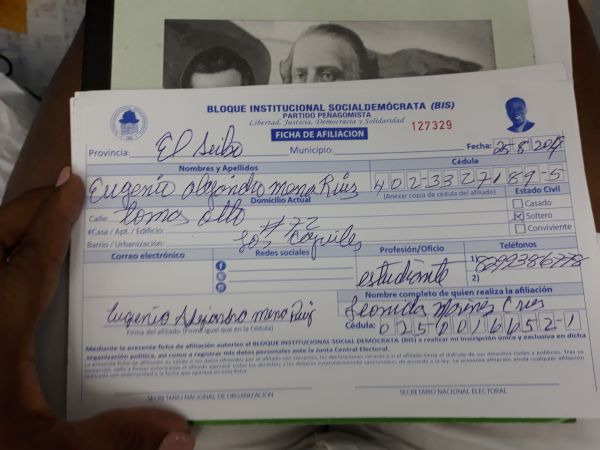 BLOQUE INSTITUCIONAL SOCIALDEMÓCRATA (BIS)
PARTIDO PEÑAGOMISTA
Libertad, Justicia, Democracia y Solidaridad
FICHA DE AFILIACION
127329
Provincia: El Seibo Municipio: Fecha: 25-8-2019
Nombres y Apellidos
Cédula
Eugenio Alejandro mena Ruiz
402-3327189-5
Domicilio Actual
(Anexar copia de cédula del afiliado)
Calle: Loma Alto
Estado Civil
#Casa / Apt. / Edificio: #72
Casado
Soltero
Barrio / Urbanización: Los
Conviviente
Correo electrónico
Redes sociales
Profesión/Oficio
Teléfonos
estudiante
1)
2)
Nombre completo de quien realiza la afiliación
Eugenio Alejandro mena Ruiz
Firma del afiliado (Firma igual que en la Cédula)
Cédula: 025-0016652-1
Mediante la presente ficha de afiliación autorizo al BLOQUE INSTITUCIONAL SOCIAL DEMÓCRATA (BIS) a realizar mi inscripción única y exclusiva en dicha
organización política, así como a registrar mis datos personales ante la Junta Central Electoral.
SECRETARIO NACIONAL DE ORGANIZACIÓN
SECRETARIO NACIONAL ELECTORAL